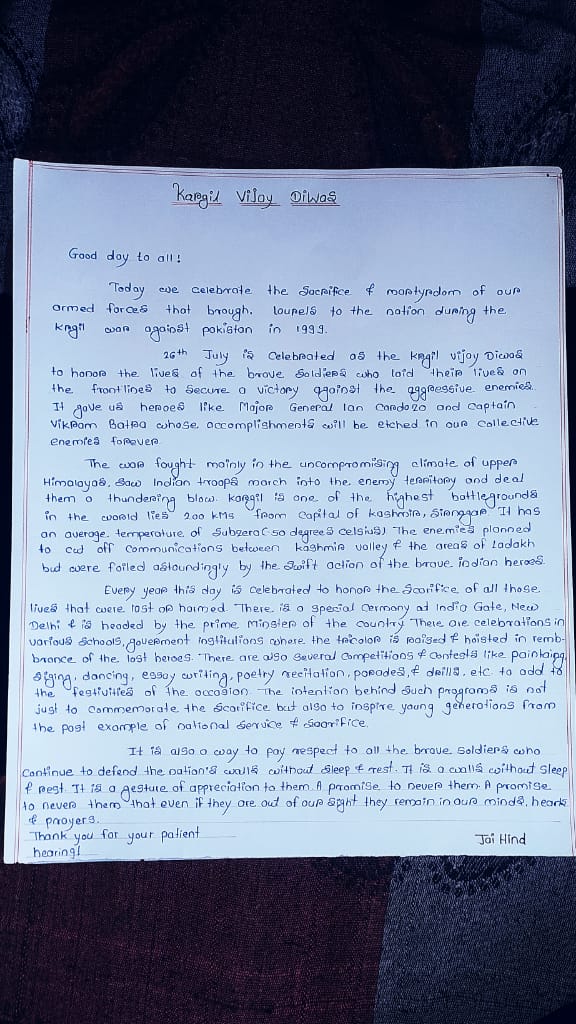 Kargil Vijay Diwas
Good day to all!
Today we celebrate the Sacrifice & martyrdom of our
armed forces that brough. lourels to the nation during the
Krgil war against pakistan in 1999.
26th July is Celebrated as the Krgil vijoy Diwas
to honor the lives of the brave Soldiers who laid their lives on
the frontlines to Secure a victory against the aggressive enemies.
It gave us heroes like Major General Ian Candozo and captain
Vikram Batra whose accomplishments will be etched in our collective
enemies forever.
The war fought mainly in the uncompromising climate of upper
Himalayas, Saw Indian troops march into the enemy territory and deal
them a thundering blow. Kargil is one of the highest battlegrounds
in the world lies 200 kms from capital of kashmir, Sirnggar It has
an average. temperature of Subzero(-50 degrees celsius) The enemies planned
to cut off communications between kashmir valley & the areas of Ladakh
but were foiled astoundingly by the Swift action of the brave indian heroes.
Every year this day is celebrated to honor the Scarifice of all those.
lives that were lost or harmed. There is a special Cermony at India Gate, New
Delhi & is headed by the prime Minster of the country There are celebrations in
various Schools, goverment institutions where the tricolor is raised & hoisted in remb-
brance of the lost heroes. There are also several Competitions & Contests like paintaing,
Siging, dancing, essay writing, poetry recitation, parades, & drills, etc. to add to
the festivities of the occasion The intention behind such programs is not
just to commemorate the Scarifice but also to inspire young generations from
the past example of national Service & Sacrifice.
It is also a way to pay respect to all the brave soldiers who
continue to defend the nation's walls without sleep & rest. It is a walls without sleep
& rest. It is a gesture of appreciation to them. A promise to never them. A promise
to never them that even if they are out of our sight they remain in our minds, hearts
& prayers.
Thank you for your patient
hearing!
Jai Hind